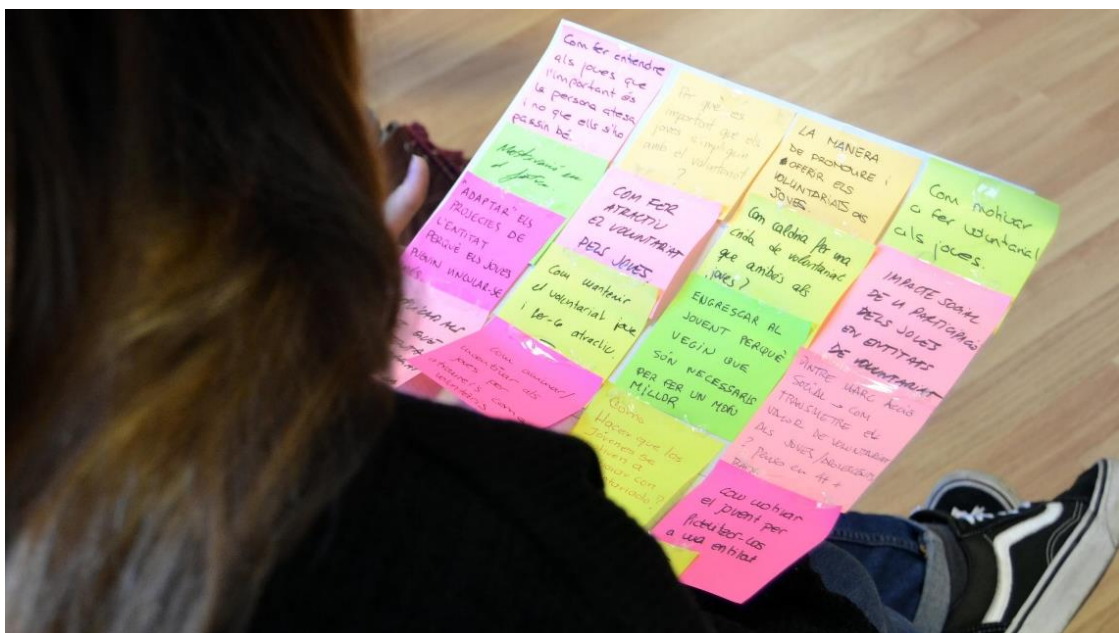 Com fer entendre
als joves que
l'important és
la persona atesa
i no que ells s'ho
passin bé.
Per què és
important que els
joves s'impliquin
amb el voluntariat
?
LA MANERA
DE PROMOURE i
OFERIR ELS
VOLUNTARIATS ALS
JOVES.
Com motivar
a fer voluntariat
als joves.
"ADAPTAR" ELS
PROJECTES DE
L'ENTITAT
PERQUÈ ELS JOVES
PUGUIN VINCULAR-SE
COM FER
ATRACTIU
EL VOLUNTARIAT
PELS JOVES
Com caldria fer una
crida de voluntariat
que arribés als
joves?
IMPACTE SOCIAL
DE LA PARTICIPACIÓ
DELS JOVES
EN ENTITATS
DE VOLUNTARIAT
Com mantenir
el voluntariat jove
i fer-lo atractiu.
ENGRESCAR AL
JOVENT PERQUÈ
VEGIN QUE
SÓN NECESSARIS
PER FER UN MÓN
MILLOR
ENTRE MARC ACCIÓ
SOCIAL → COM
TRANSMETRE EL
VALOR DE VOLUNTARIAT
ALS JOVES
?
Com
als
joves per
Cómo
Hacer que los
jóvenes se
a
con
Com motivar
el jovent per
a una entitat